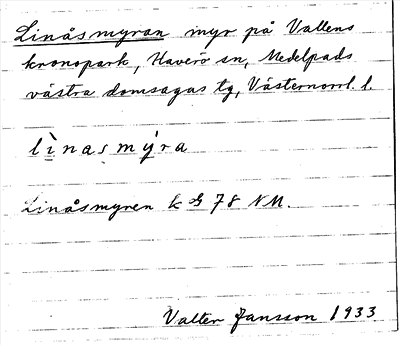 Linåsmyran myr på Vallens
kronopark, Haverö sn, Medelpads
västra domsagas tg, Västernorrl. l.
lìnasmýra
Linåsmyren k G 78 NM.
Valter Jansson 1933